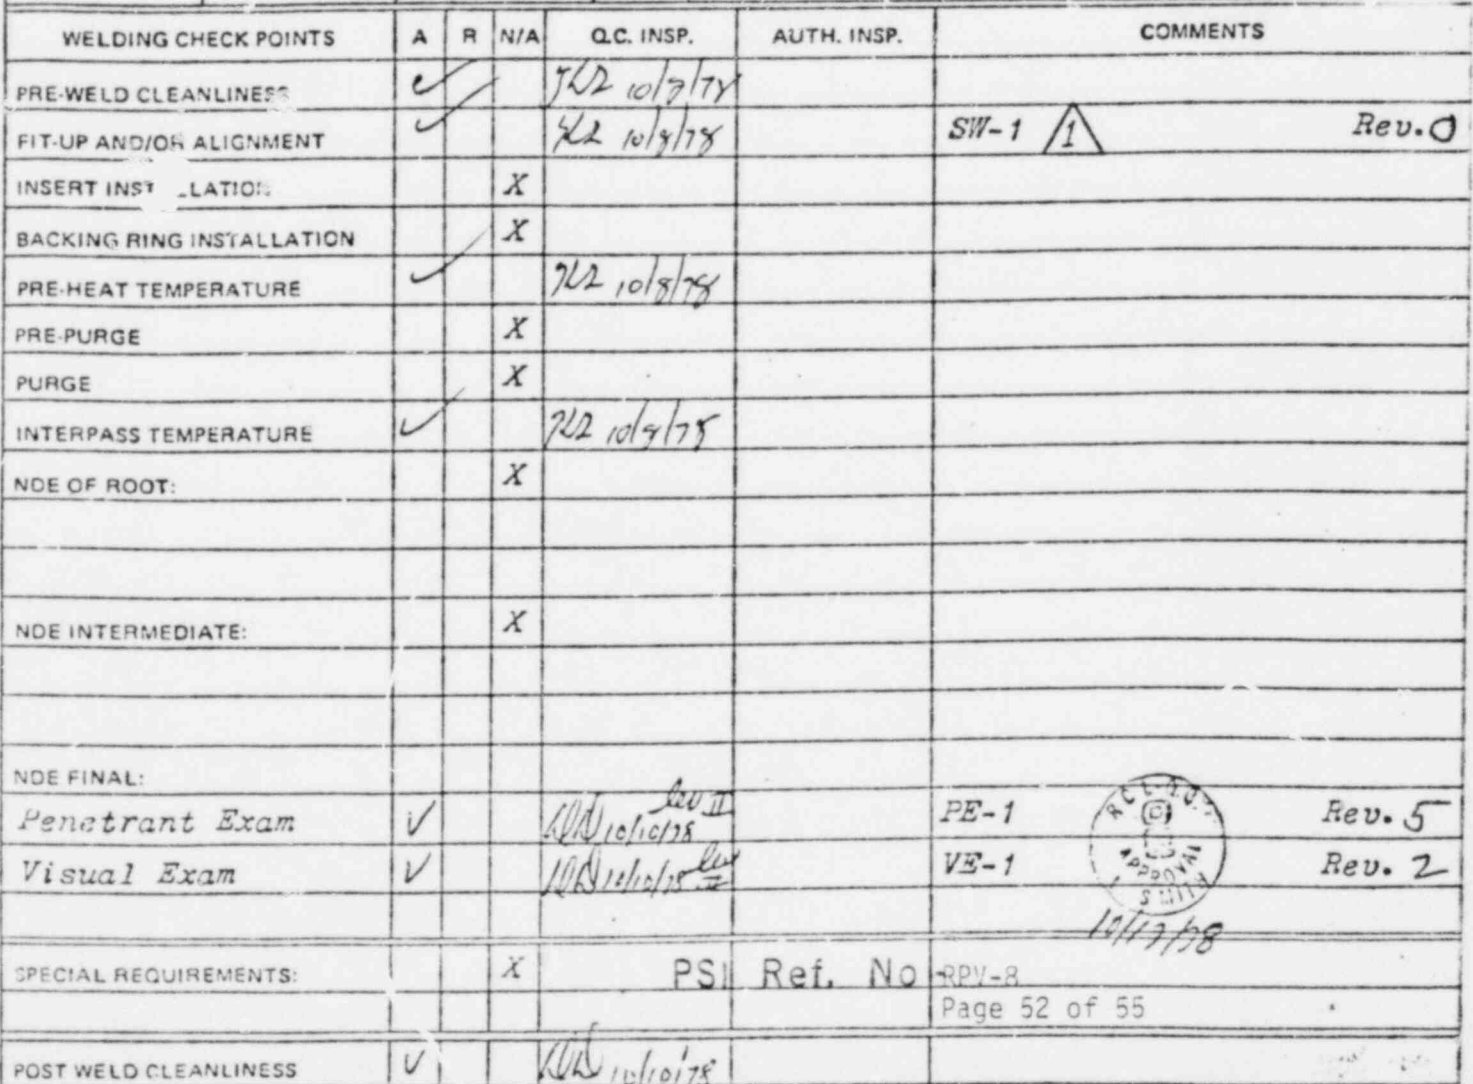 WELDING CHECK POINTS A R N/A Q.C. INSP. AUTH. INSP. COMMENTS
PRE-WELD CLEANLINESS ✓
FIT-UP AND/OR ALIGNMENT ✓ 10/8/78 SW-1 1 Rev. 0
INSERT X
BACKING RING INSTALLATION X
PRE-HEAT TEMPERATURE ✓ 10/8/78
PRE-PURGE X
PURGE X
INTERPASS TEMPERATURE ✓ 10/8/78
NDE OF ROOT: X
NDE INTERMEDIATE: X
NDE FINAL:
Penetrant Exam ✓ 10/10/78 lev II PE-1 Rev. 5
Visual Exam ✓ 10/10/78 lev II VE-1 Rev. 2
APPROVAL
SPECIAL REQUIREMENTS: X PSI Ref. No RPV-8
Page 52 of 55
POST WELD CLEANLINESS ✓ 10/10/78